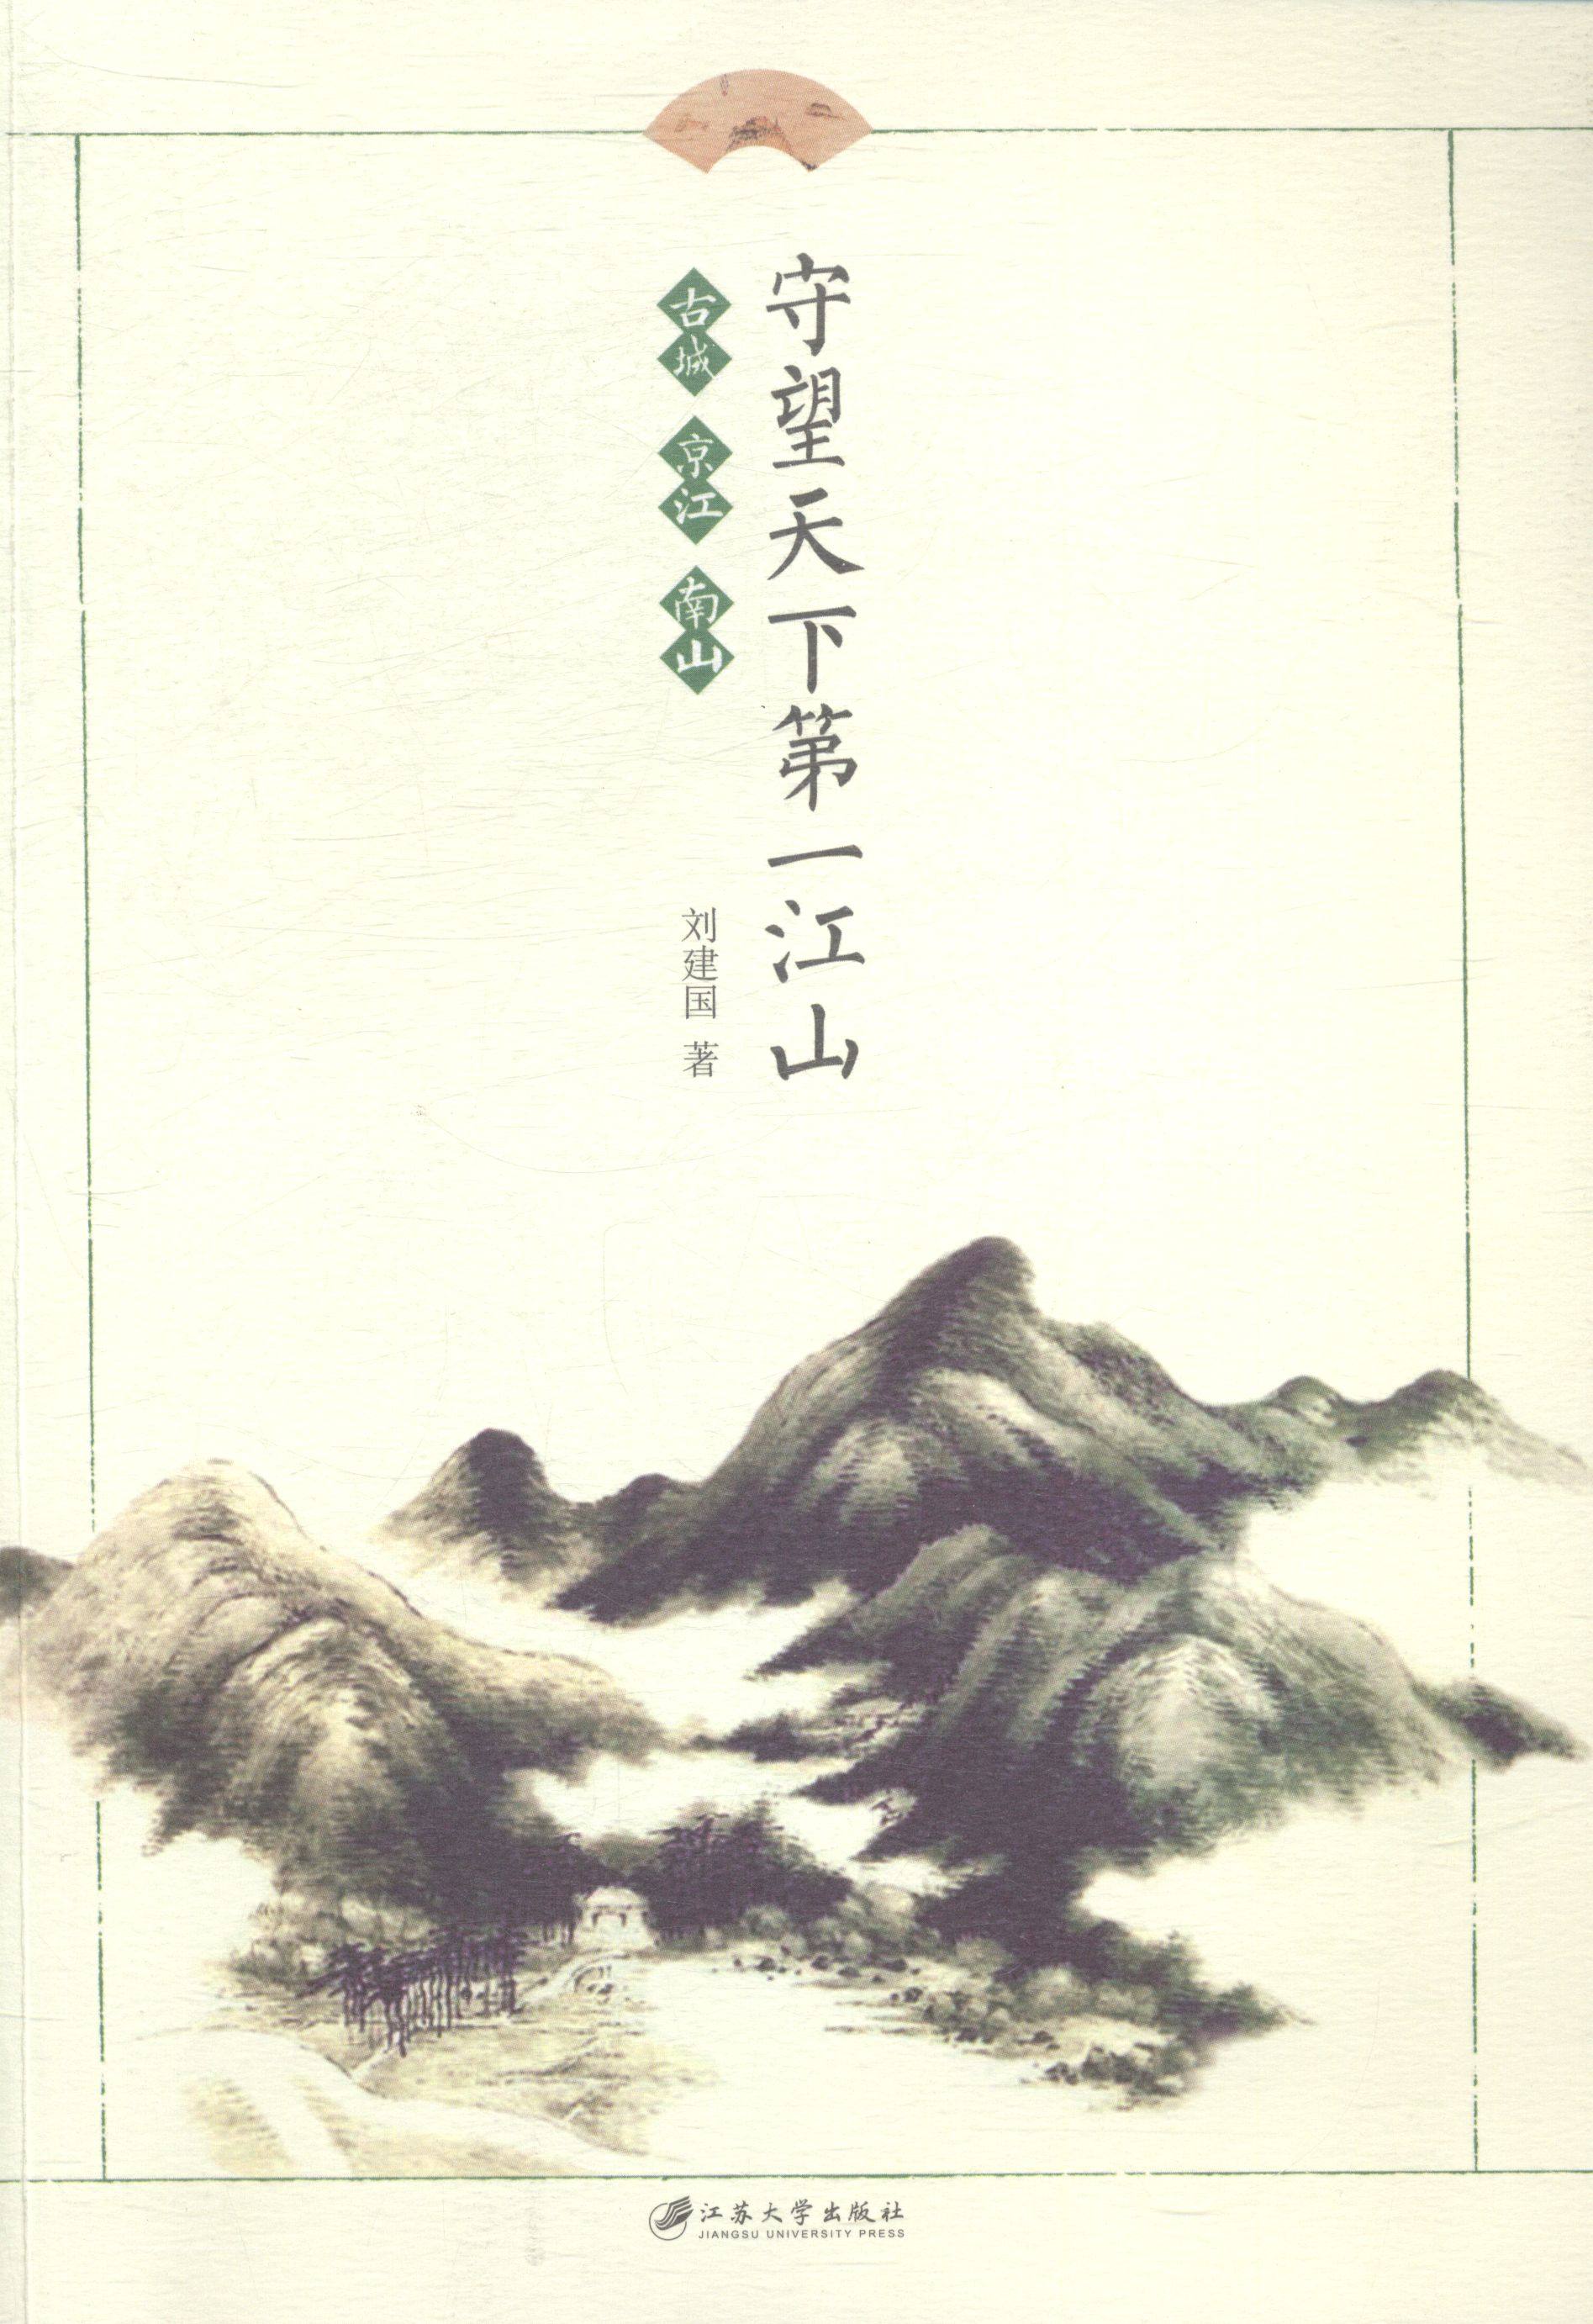 守望天下第一江山
古城 京江 南山
刘建国 著
江苏大学出版社
JIANGSU UNIVERSITY PRESS